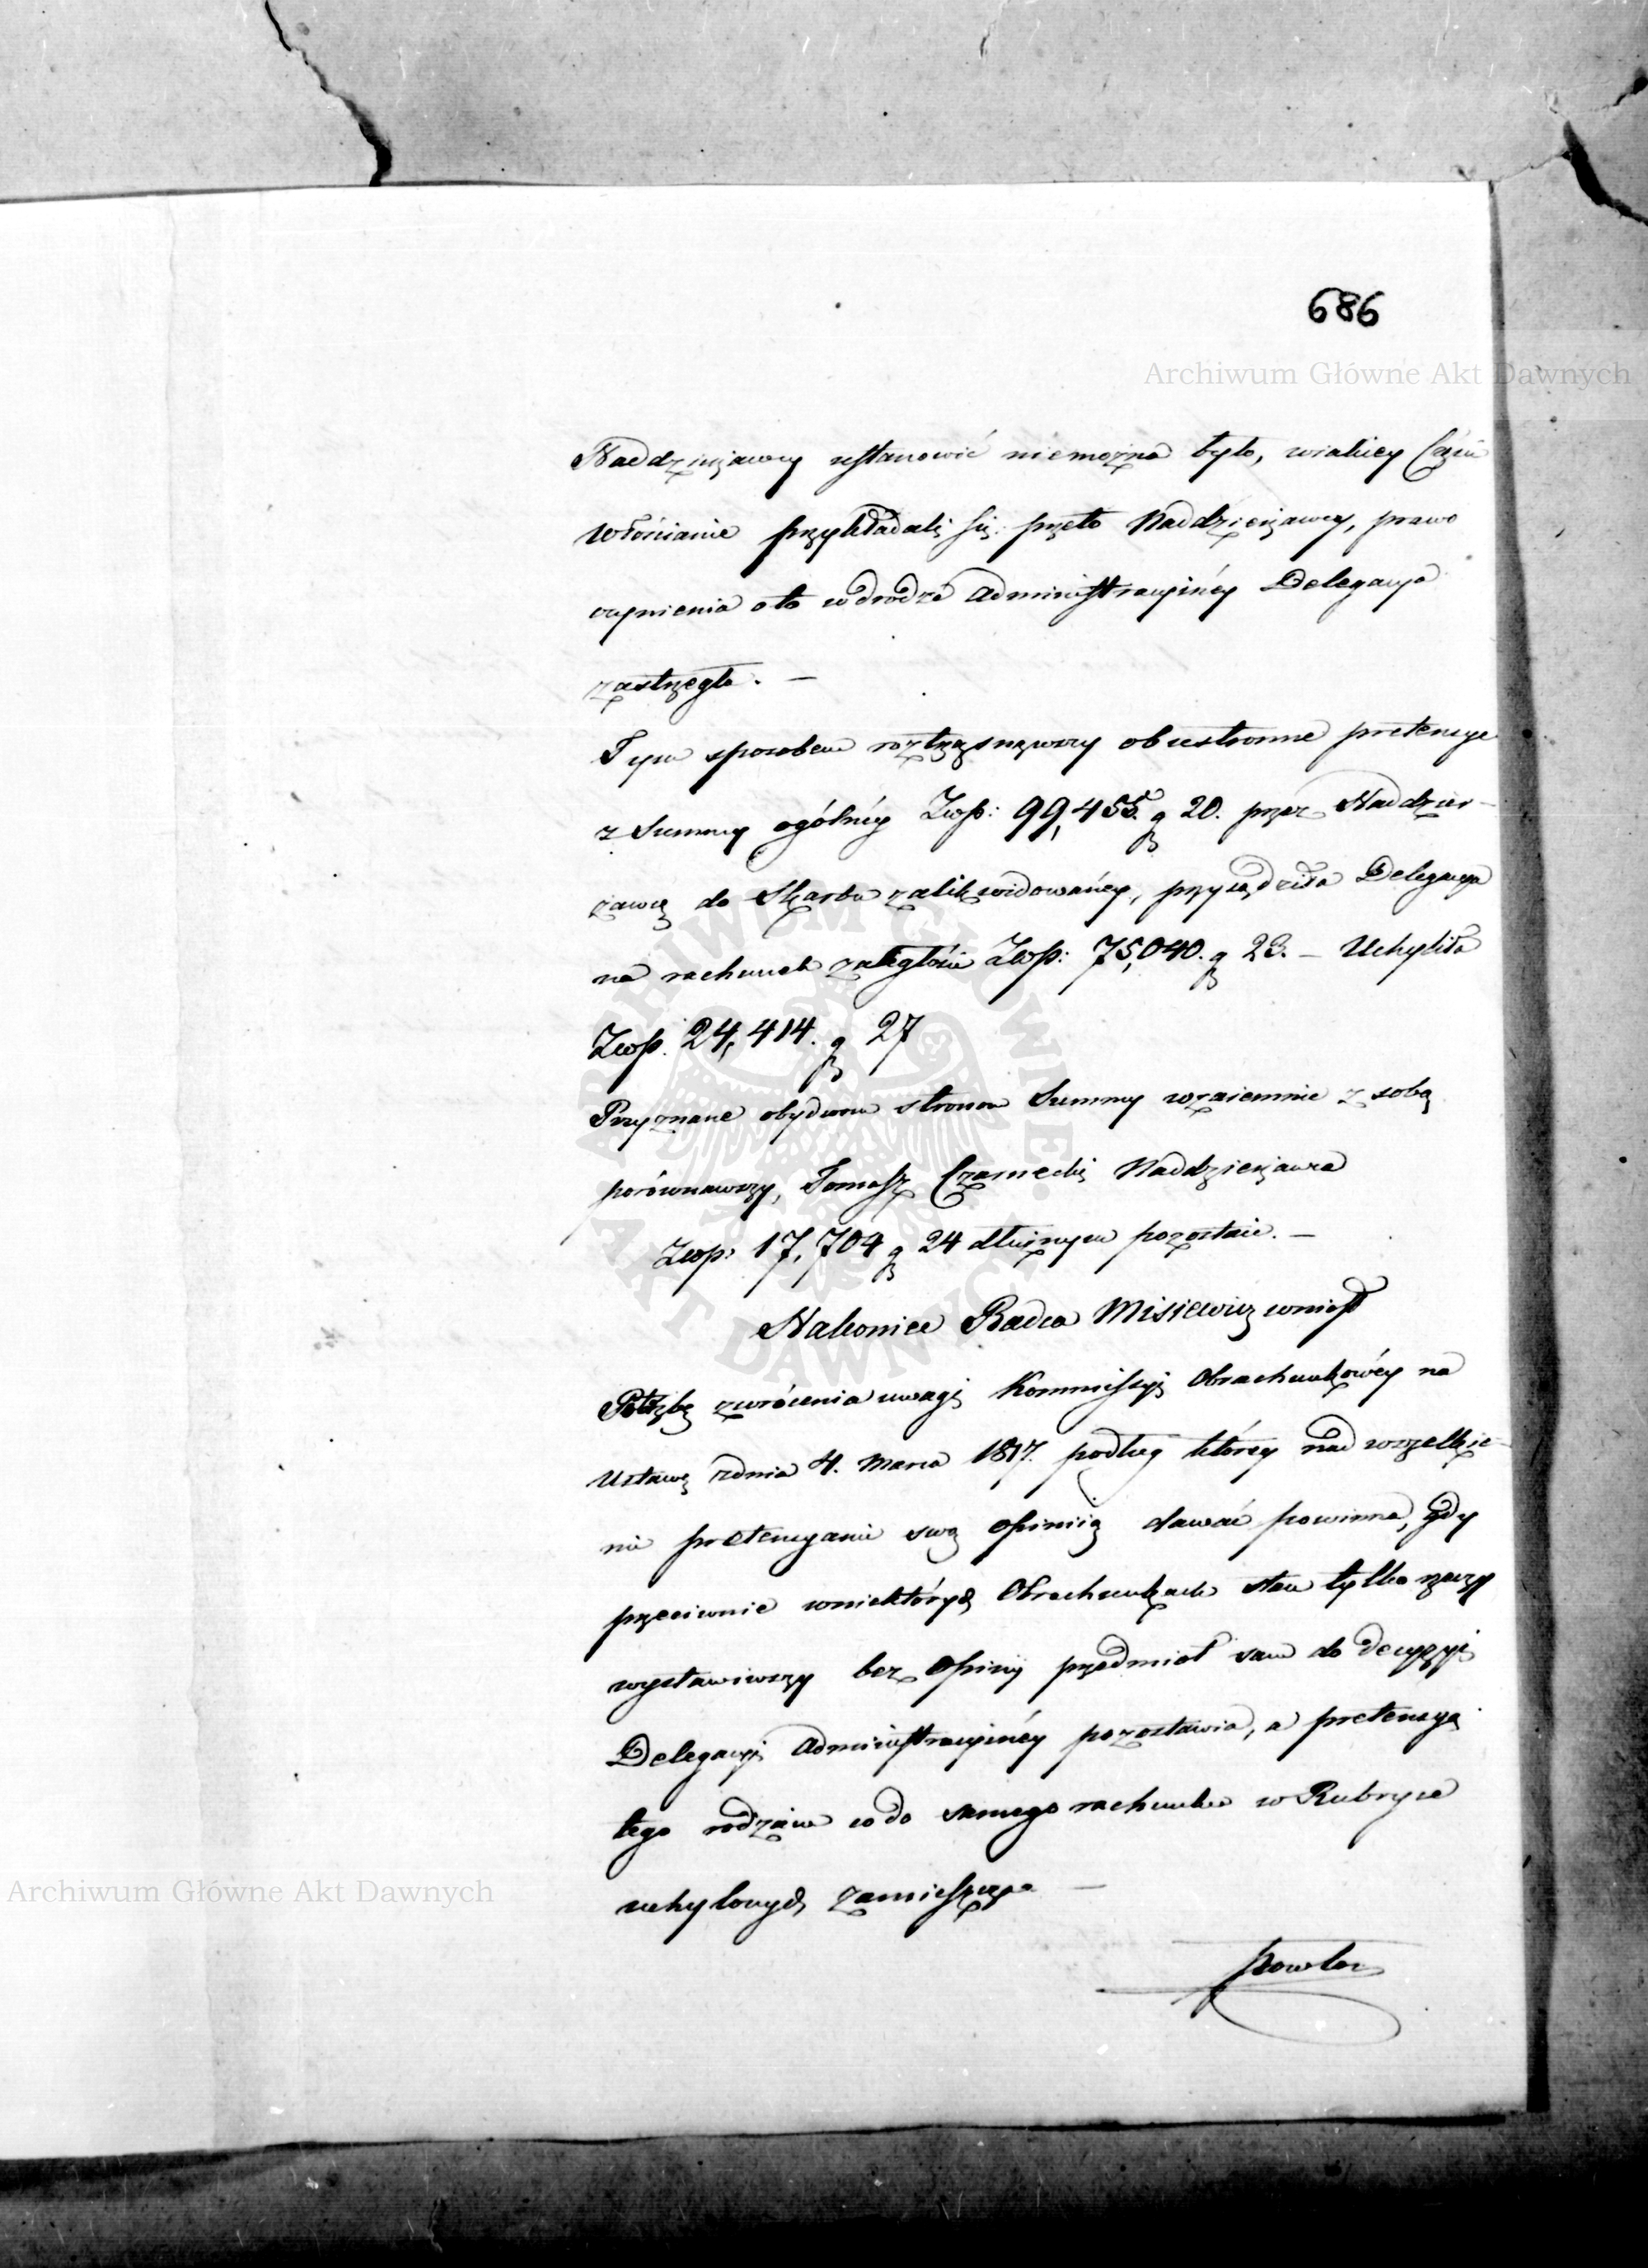 686
Archiwum Główne Akt Dawnych
Naddzierżawcy ustanowić niemożna było, wiakiey Części
Włościanie przykładali się. przeto Naddzierżawcy, prawo
czynienia oto wdrodze Administracyinéy Delegacya
zastrzegła. —
Tym sposobem roztrząsnąwszy obustronne pretensye
z Summy ogólnéy Zwp: 99,455. g 20. przez Naddzier-
żawcę do Skarbu zalikwidowanéy, przysądziła Delegacya
na rachunek zaległości Zwp: 75,040. g 23. — Uchyliła
Zwp. 24,414. g 27
Przyznane obydwom stronom Summy wzaiemnie z sobą
porównawszy, Tomasz Czarnecki Naddzierżawca
Zwp: 17,704 g 24 dłużnym pozostaie. —
Nakoniec Radca Misiewicz wniosł
Potrzebę zwrócenia uwagi Kommissyi Obrachunkowéy na
Ustawę zdnia 4. Marca 1817. podług któréy nad wszelkie-
mi pretensyami swą opiniią dawać powinna, gdy
przeciwnie wniektórych Obrachunkach stan tylko rzeczy
wystawiwszy bez Opinii przedmiot sam do decyzyi
Delegacyi Administracyinéy pozostawia, a pretensye
tego rodzaiu co do samego rachunku w Rubryce
uchylonych zamieszcza —
Archiwum Główne Akt Dawnych
ARCHIWUM GŁÓWNE AKT DAWNYCH